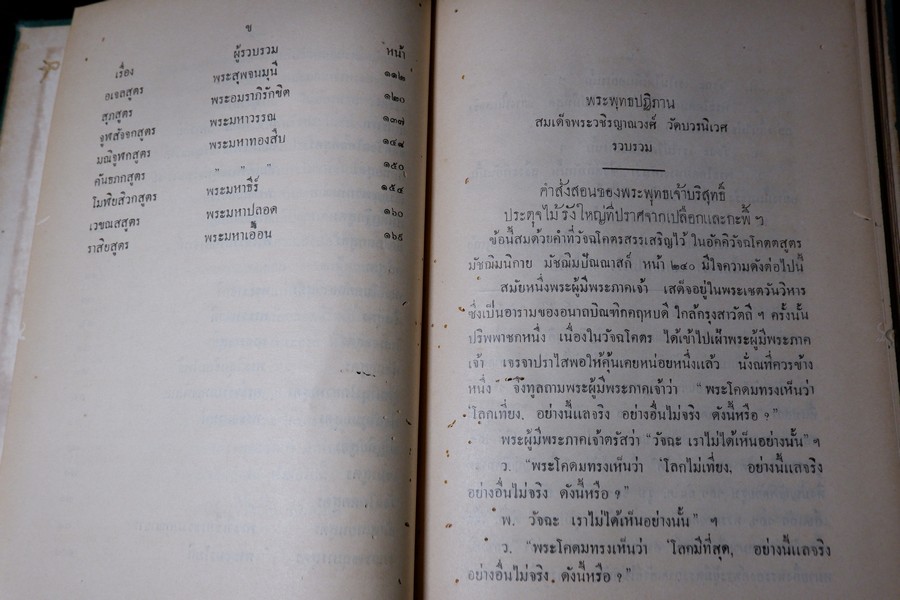 ข
เรื่อง ผู้รวบรวม หน้า
อเจลสูตร พระสุพจนมุนี ๑๑๒
สุภสูตร พระอมราภิรักขิต ๑๒๐
จูฬสัจจกสูตร พระมหาวรรณ ๑๓๗
มณิจูฬกสูตร พระมหาทองสืบ ๑๔๘
คันธภกสูตร " " " ๑๕๐
โมฬิยสิวกสูตร พระมหาธีร์ ๑๕๔
เวขณสสูตร พระมหาปลอด ๑๖๐
ราสิยสูตร พระมหาเอื้อน ๑๖๕
พระพุทธปฏิภาน
สมเด็จพระวชิรญาณวงศ์ วัดบวรนิเวศ
รวบรวม
คำสั่งสอนของพระพุทธเจ้าบริสุทธิ์
ประดุจไม้รังใหญ่ที่ปราศจากเปลือกและกะพี้ ฯ
ข้อนี้สมด้วยคำที่วัจฉโคตรสรรเสริญไว้ ในอัคคิวัจฉโคตตสูตร
มัชฌิมนิกาย มัชฌิมปัณณาสก์ หน้า ๒๔๐ มีใจความดังต่อไปนี้
สมัยหนึ่งพระผู้มีพระภาคเจ้า เสด็จอยู่ในพระเชตวันวิหาร
ซึ่งเป็นอารามของอนาถบิณฑิกคฤหบดี ใกล้กรุงสาวัตถี ฯ ครั้งนั้น
ปริพพาชกหนึ่ง เนื่องในวัจฉโคตร ได้เข้าไปเฝ้าพระผู้มีพระภาค
เจ้า เจรจาปราไสพอให้คุ้นเคยหน่อยหนึ่งแล้ว นั่งณที่ควรข้าง
หนึ่ง จึงทูลถามพระผู้มีพระภาคเจ้าว่า "พระโคดมทรงเห็นว่า
'โลกเที่ยง, อย่างนี้แลจริง อย่างอื่นไม่จริง ดังนี้หรือ ?"
พระผู้มีพระภาคเจ้าตรัสว่า "วัจฉะ เราไม่ได้เห็นอย่างนั้น" ฯ
ว. "พระโคดมทรงเห็นว่า 'โลกไม่เที่ยง, อย่างนี้แลจริง
อย่างอื่นไม่จริง ดังนี้หรือ ?"
พ. วัจฉะ เราไม่ได้เห็นอย่างนั้น" ฯ
ว. "พระโคดมทรงเห็นว่า 'โลกมีที่สุด, อย่างนี้แลจริง
อย่างอื่นไม่จริง, ดังนี้หรือ ?"